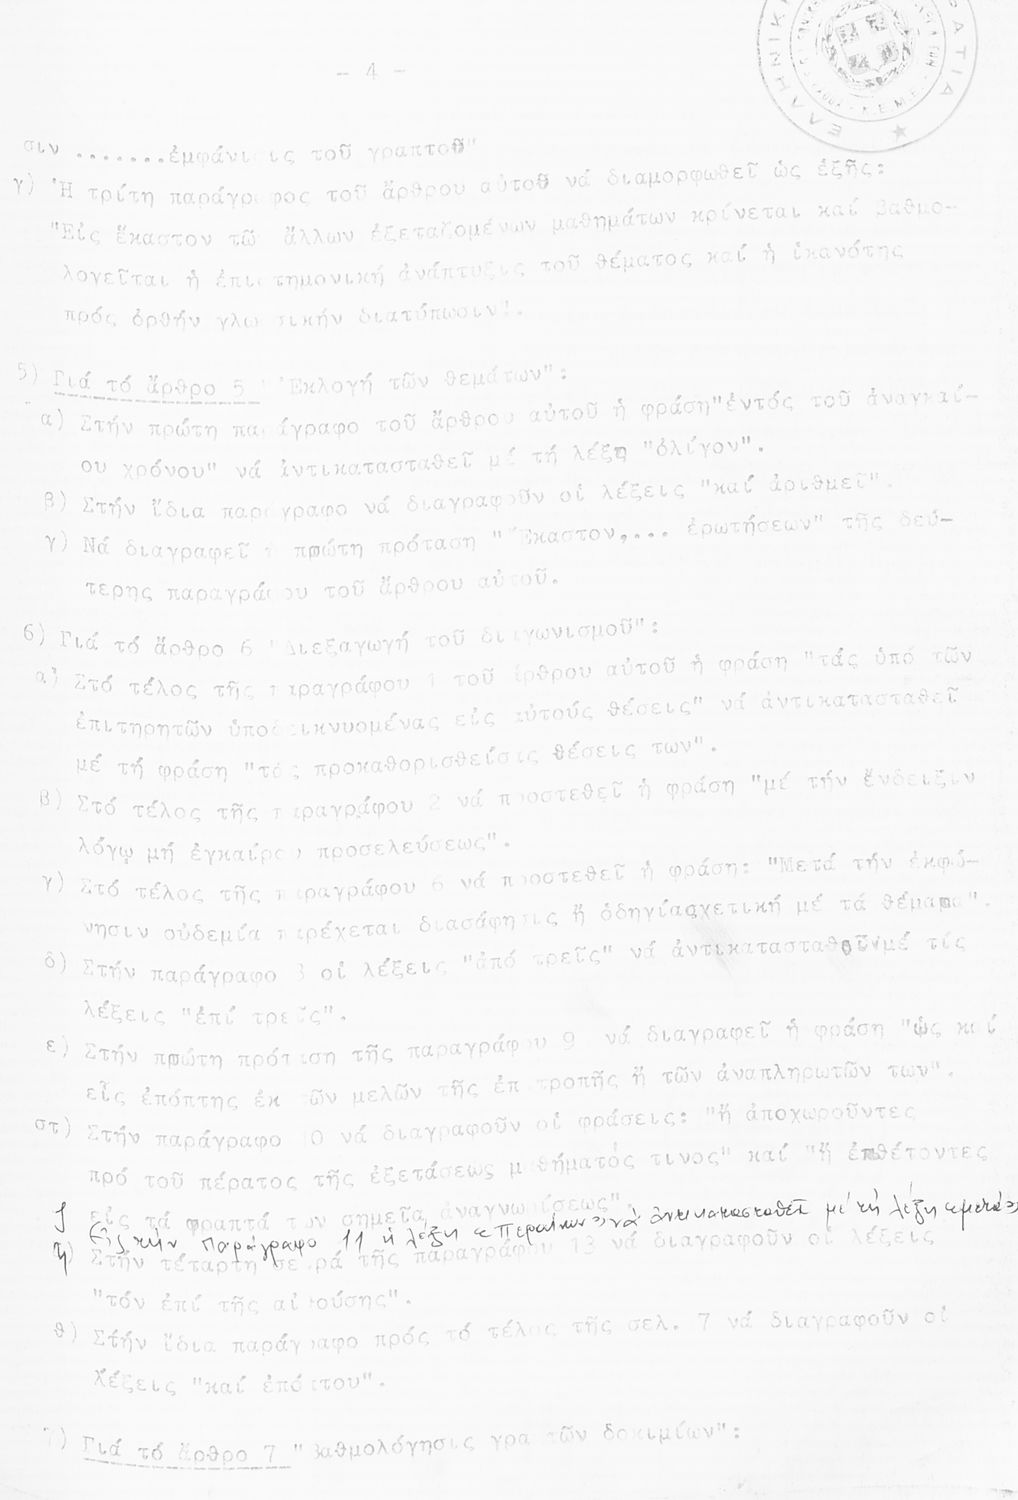 - 4 -
σιν .......ἐμφάνισις τοῦ γραπτοῦ"
γ) Ἡ τρίτη παράγραφος τοῦ ἄρθρου αὐτοῦ νά διαμορφωθεῖ ὡς ἑξῆς:
"Εἰς ἕκαστον τῶν ἄλλων ἐξεταζομένων μαθημάτων κρίνεται καί βαθμο-
λογεῖται ἡ ἐπιστημονική ἀνάπτυξις τοῦ θέματος καί ἡ ἱκανότης
πρός ὀρθήν γλωσσικήν διατύπωσιν".
5) Γιά τό ἄρθρο 5 "Ἐκλογή τῶν θεμάτων":
α) Στήν πρώτη παράγραφο τοῦ ἄρθρου αὐτοῦ ἡ φράση"ἐντός τοῦ ἀναγκαί-
ου χρόνου" νά ἀντικατασταθεῖ μέ τή λέξη "ὀλίγον".
β) Στήν ἴδια παράγραφο νά διαγραφοῦν οἱ λέξεις "καί ἀριθμεῖ".
γ) Νά διαγραφεῖ ἡ πρώτη πρόταση "Ἕκαστον,... ἐρωτήσεων" τῆς δεύ-
τερης παραγράφου τοῦ ἄρθρου αὐτοῦ.
6) Γιά τό ἄρθρο 6 "Διεξαγωγή τοῦ διαγωνισμοῦ":
α) Στό τέλος τῆς παραγράφου 1 τοῦ ἄρθρου αὐτοῦ ἡ φράση "τάς ὑπό τῶν
ἐπιτηρητῶν ὑποδεικνυομένας εἰς αὐτούς θέσεις" νά ἀντικατασταθεῖ
μέ τή φράση "τάς προκαθορισθείσις θέσεις των".
β) Στό τέλος τῆς παραγράφου 2 νά προστεθεῖ ἡ φράση "μέ τήν ἔνδειξιν
λόγῳ μή ἐγκαίρου προσελεύσεως".
γ) Στό τέλος τῆς παραγράφου 6 νά προστεθεῖ ἡ φράση: "Μετά τήν ἐκφώ-
νησιν οὐδεμία παρέχεται διασάφησις ἤ ὁδηγίασχετική μέ τά θέματα".
δ) Στήν παράγραφο 8 οἱ λέξεις "ἀπό τρεῖς" νά ἀντικατασταθοῦν μέ τίς
λέξεις "ἐπί τρεῖς".
ε) Στήν πρώτη πρόταση τῆς παραγράφου 9 νά διαγραφεῖ ἡ φράση "ὡς καί
εἷς ἐπόπτης ἐκ τῶν μελῶν τῆς ἐπιτροπῆς ἤ τῶν ἀναπληρωτῶν των".
στ) Στήν παράγραφο 10 νά διαγραφοῦν οἱ φράσεις: "ἤ ἀποχωροῦντες
πρό τοῦ πέρατος τῆς ἐξετάσεως μαθήματός τινος" καί "ἤ ἐπιθέτοντες
εἰς τά γραπτά των σημεῖα ἀναγνωρίσεως".
ζ Εἰς τήν παράγραφο 11 ἡ λέξη «Περαίνων» νά ἀντικατασταθεῖ μέ τή λέξη «μετά»
η) Στήν τέταρτη σειρά τῆς παραγράφου 13 νά διαγραφοῦν οἱ λέξεις
"τόν ἐπί τῆς αἰθούσης".
θ) Στήν ἴδια παράγραφο πρός τό τέλος τῆς σελ. 7 νά διαγραφοῦν οἱ
λέξεις "καί ἐπόπτου".
7) Γιά τό ἄρθρο 7 "Βαθμολόγησις γραπτῶν δοκιμίων":